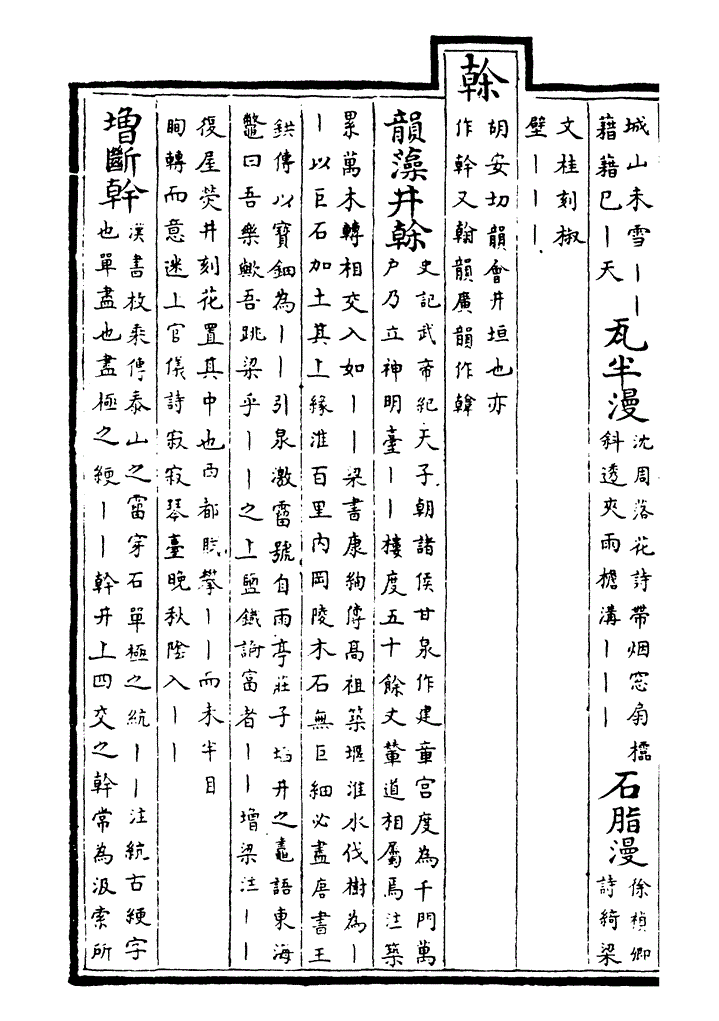 城山未雪丨丨
藉藉巳丨天
瓦半漫
沈周落花詩帶烟窓扇櫺
斜透夾雨檐溝丨丨丨
石脂漫
徐禎卿
詩綺梁
文桂刻椒
壁丨丨丨
榦
胡安切韻會井垣也亦
作幹又翰韻廣韻作韓
韻藻井榦
史記武帝紀天子朝諸侯甘泉作建章宫度為千門萬
户乃立神明臺丨丨樓度五十餘丈輦道相屬焉注築
累萬木轉相交入如丨丨梁書康絢傳髙祖築堰淮水伐樹為丨
丨以巨石加土其上緣淮百里内岡陵木石無巨細必盡唐書王
鉷傳以寳鈿為丨丨引泉激霤號自雨亭莊子埳井之鼃語東海
鼈曰吾樂歟吾跳梁乎丨丨之上鹽鐵論富者丨丨增梁注丨丨
復屋熒井刻花置其中也西都賦攀丨丨而未半目
眴轉而意迷上官儀詩寂寂琴臺晚秋陰入丨丨
增斷幹
漢書枚乘傳泰山之霤穿石單極之統丨丨注統古綆字
也單盡也盡極之綆丨丨幹井上四交之幹常為汲索所